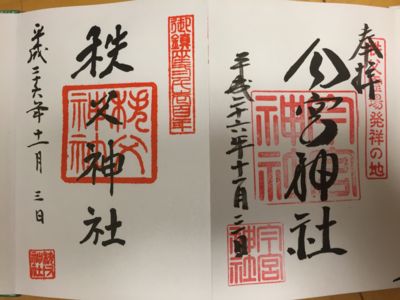 奉拝
秩父霊場発祥の地
今宮神社
今宮神社
平成二十六年十一月三日
今宮神社
御鎮座二千百年
秩父神社
秩父神社
平成二十六年十一月三日
秩父神社